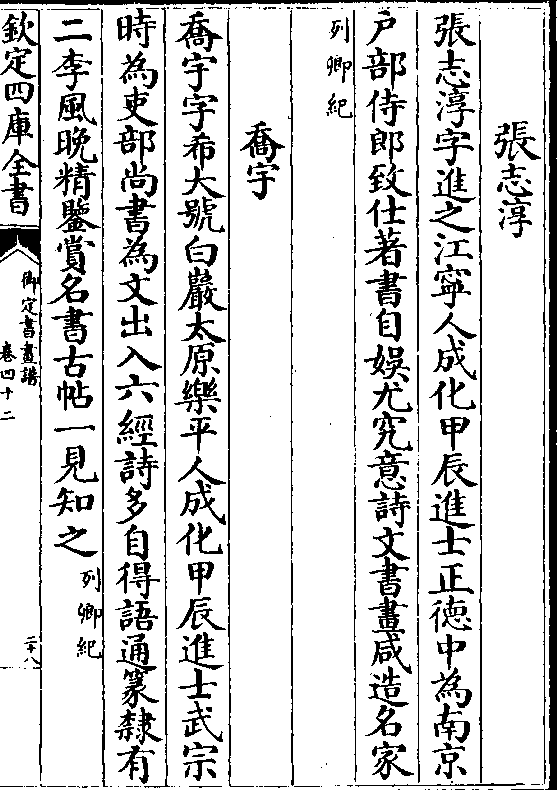 張志淳
張志淳字進之江寧人成化甲辰進士正徳中為南京
户部侍郎致仕著書自娛尤究意詩文書畫咸造名家
列卿紀
喬宇
喬宇字希大號白巖太原樂平人成化甲辰進士武宗
時為吏部尚書為文出入六經詩多自得語通篆隸有
二李風晚精鑒賞名書古帖一見知之列卿紀
欽定四庫全書
御定書畫譜
卷四十二
二十八